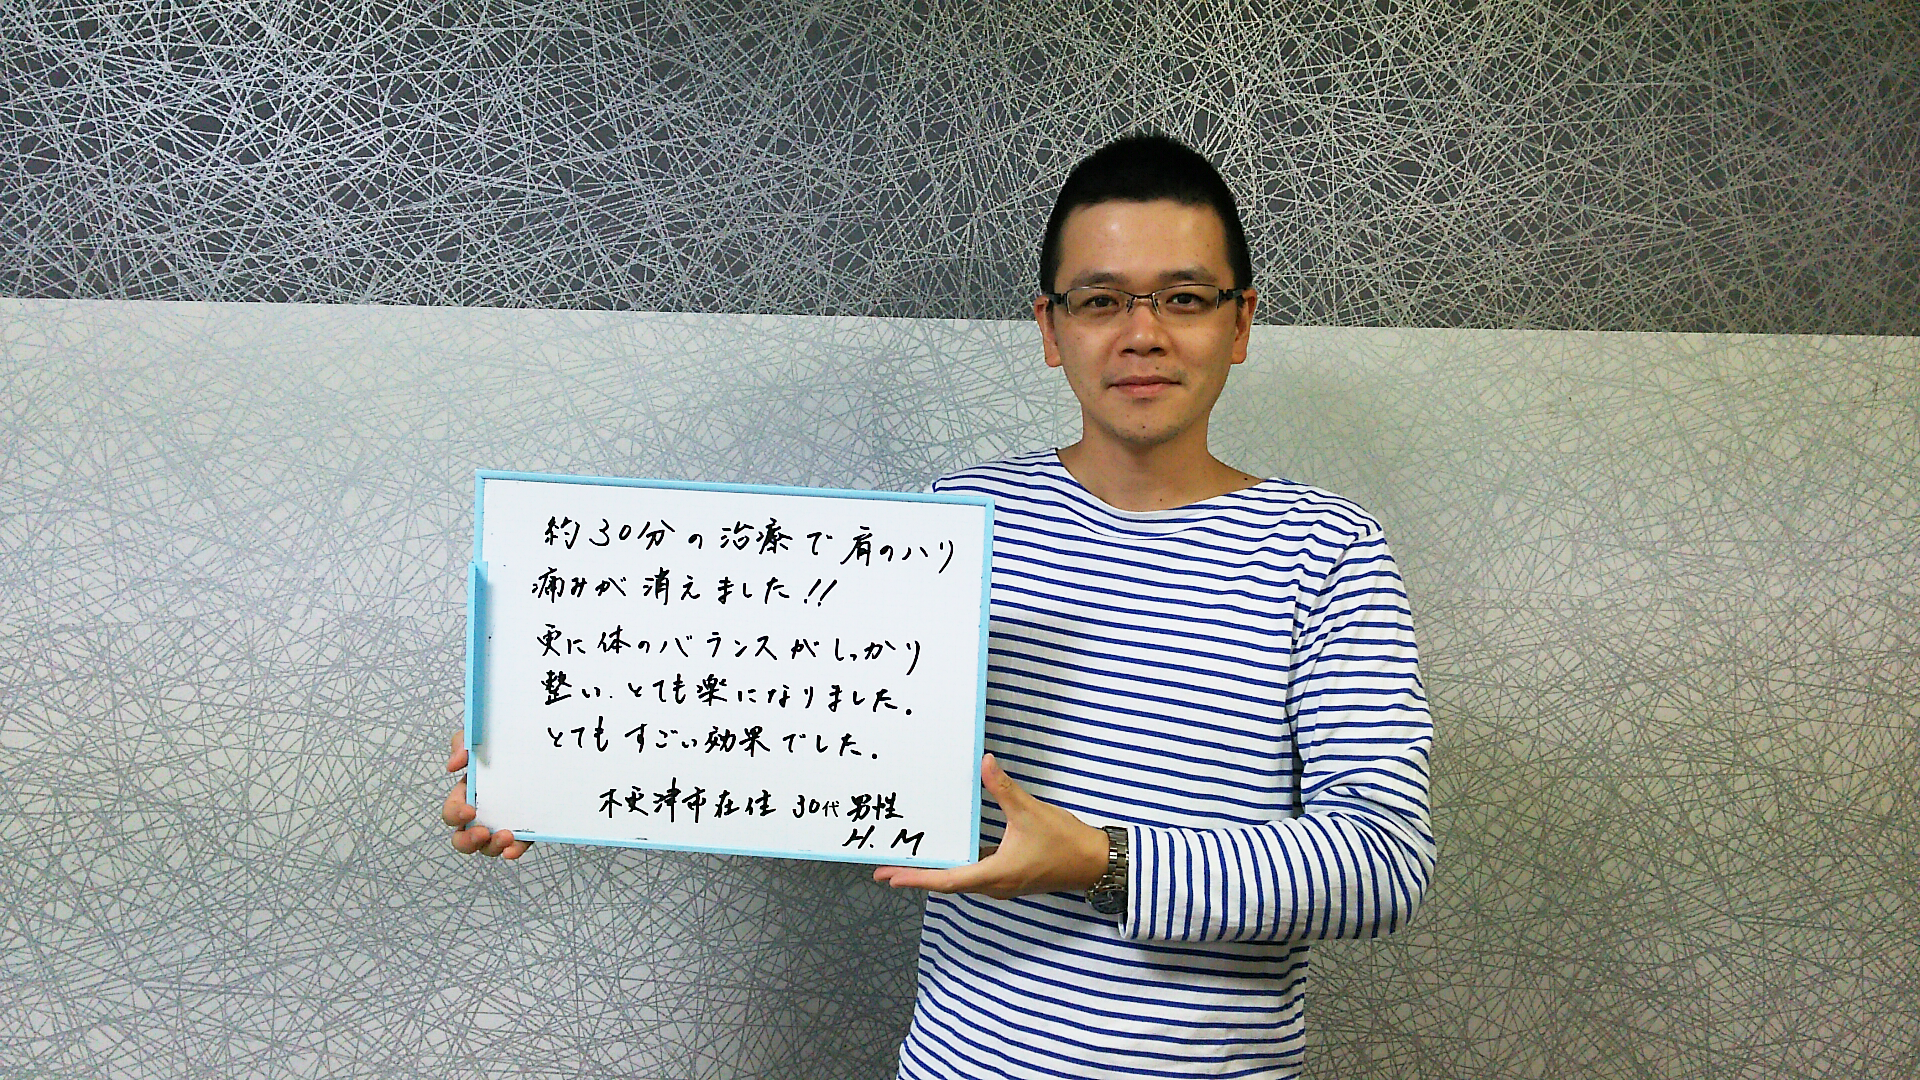 約30分の治療で肩のハリ
痛みが消えました!!
更に体のバランスがしっかり
整い、とても楽になりました。
とてもすごい効果でした。
木更津市在住 30代男性
H.M